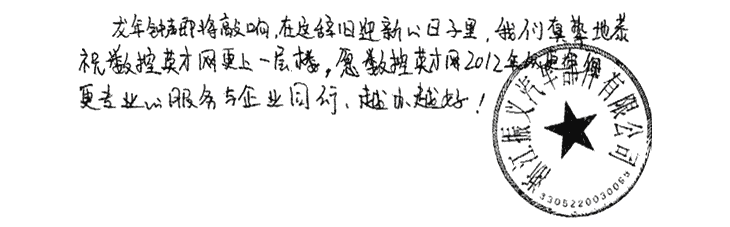 龙年钟声即将敲响,在这辞旧迎新的日子里,我们真挚地恭
祝数控英才网更上一层楼,愿数控英才网2012年
更专业的服务与企业同行、越办越好!
浙江振义汽车部件有限公司